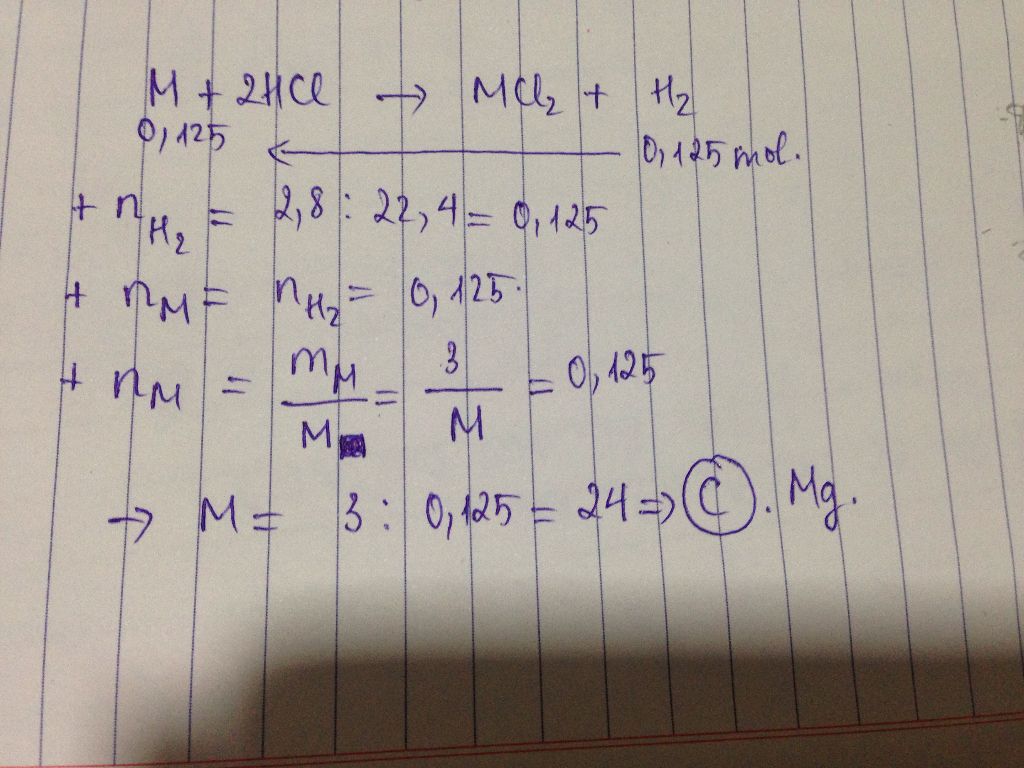 M + 2HCl → MCl₂ + H₂
0,125 ← 0,125 mol.
+ n_H₂ = 2,8 : 22,4 = 0,125
+ n_M = n_H₂ = 0,125.
+ n_M = m_M / M = 3 / M = 0,125
→ M = 3 : 0,125 = 24 ⇒ C . Mg.